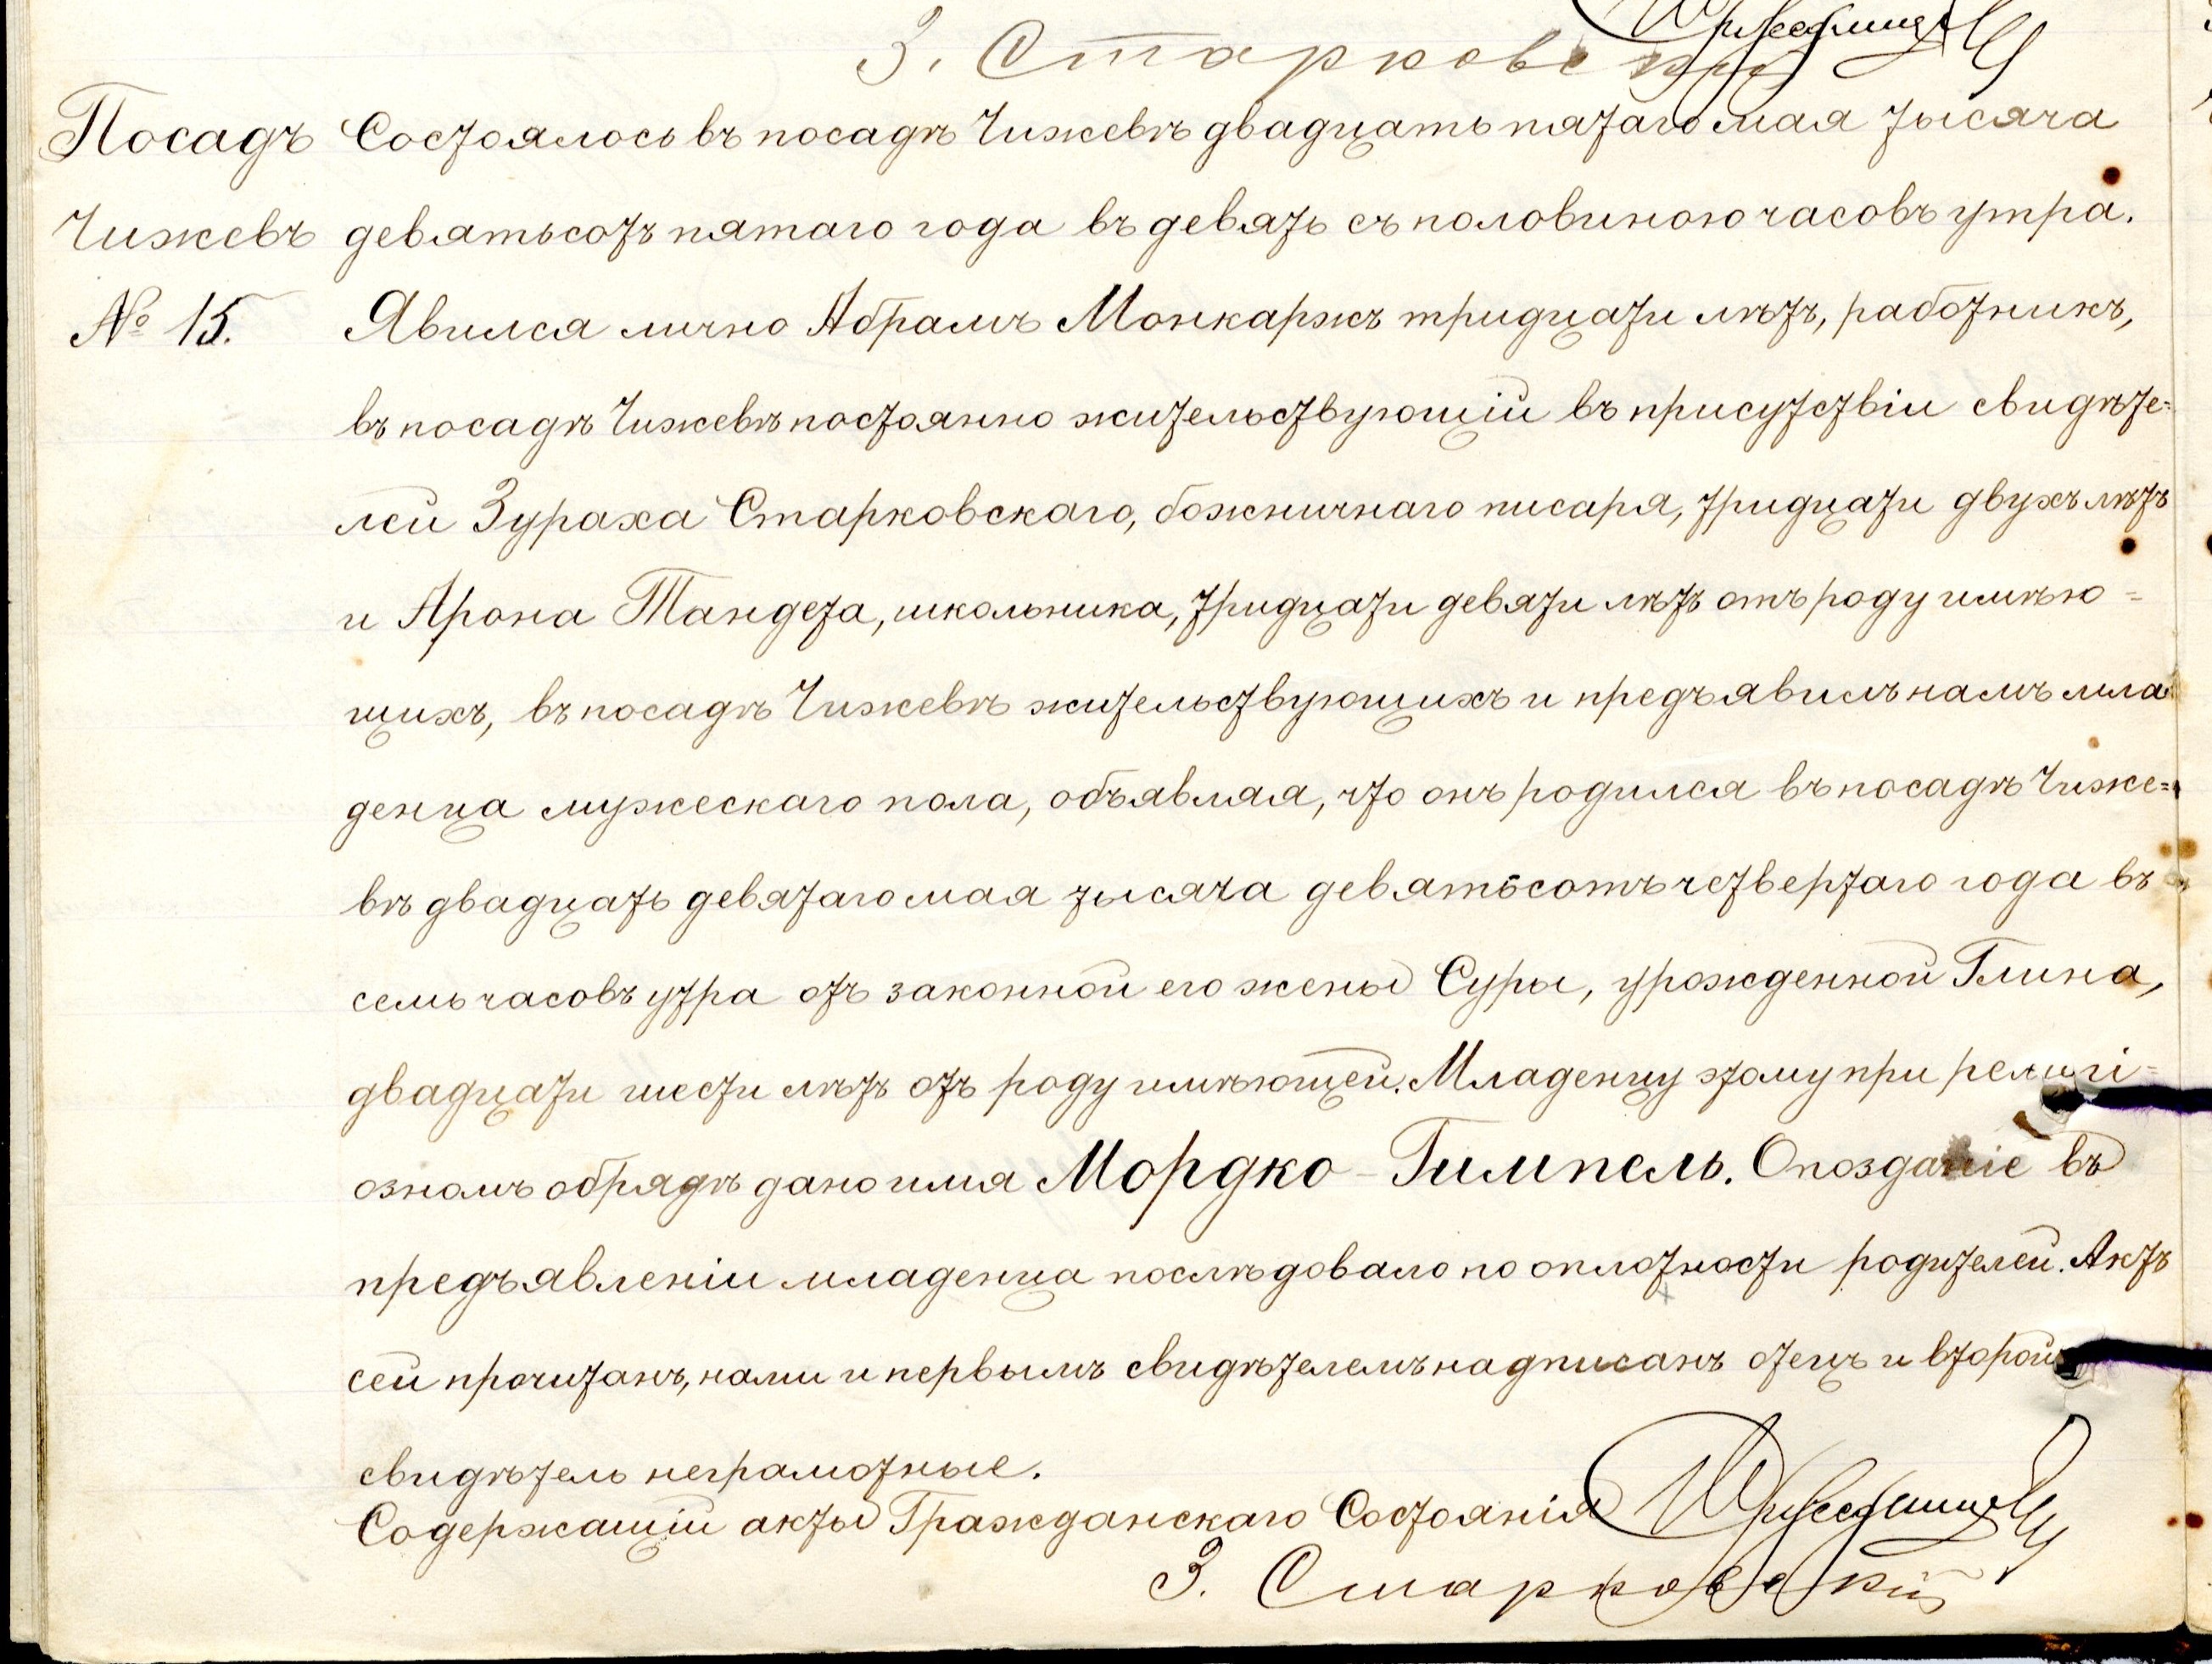 З. Старковскій
Посадъ Состоялось въ посадѣ Чижевѣ двадцать пятаго мая тысяча
Чижевъ девятьсотъ пятаго года въ девять съ половиною часовъ утра.
№ 15. Явился лично Абрамъ Монкаржъ тридцати лѣтъ, работникъ,
въ посадѣ Чижевѣ постоянно жительствующій въ присутствіи свидѣте=
лей Зураха Старковскаго, божничнаго писаря, тридцати двухъ лѣтъ
и Арона Тандета, школьника, тридцати девяти лѣтъ отъ роду имѣю=
щихъ, въ посадѣ Чижевѣ жительствующихъ и предъявилъ намъ мла
денца мужескаго пола, объявляя, что онъ родился въ посадѣ Чиже=
вѣ двадцать девятаго мая тысяча девятьсотъ четвертаго года въ
семь часовъ утра отъ законной его жены Суры, урожденной Глина,
двадцати шести лѣтъ отъ роду имѣющей. Младенцу этому при религі=
озномъ обрядѣ дано имя Мордко-Гимпель. Опозданіе въ
предъявленіи младенца послѣдовало по оплотности родителей. Актъ
сей прочитанъ, нами и первымъ свидѣтелемъ надписанъ отецъ и второй
свидѣтель неграмотные.
Содержащій акты Гражданскаго Состоянія
З. Старковскій